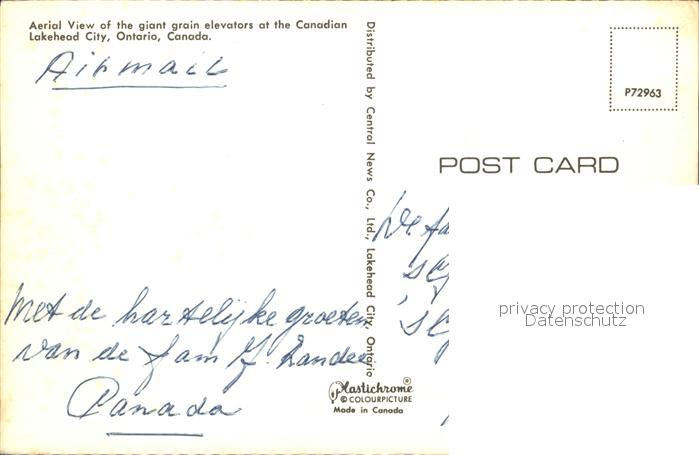 Aerial View of the giant grain elevators at the Canadian
Lakehead City, Ontario, Canada.
Airmail
Met de hartelijke groeten
van de fam
Canada
Distributed by Central News Co., Ltd., Lakehead City, Ontario
Plastichrome®
© COLOURPICTURE
Made in Canada
P72963
POST CARD
privacy protection
Datenschutz